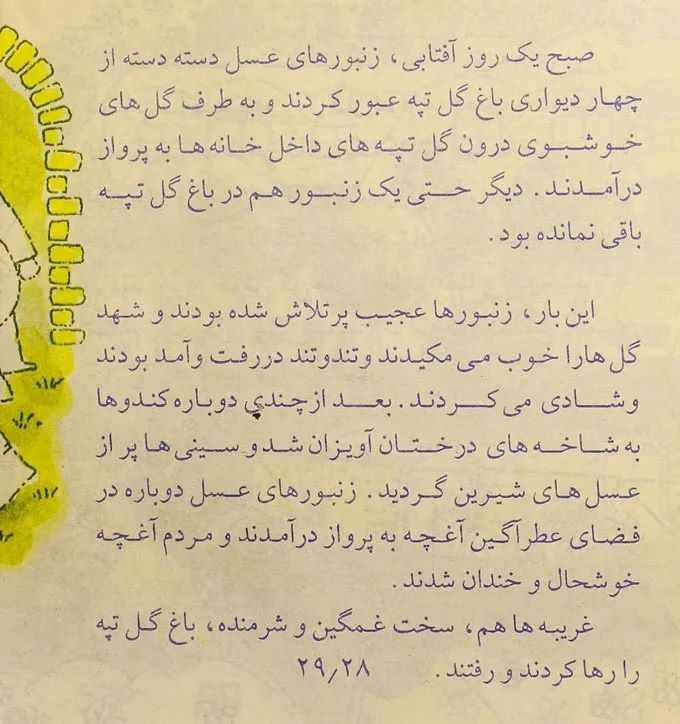 صبح یک روز آفتابی، زنبورهای عسل دسته دسته از
چهار دیواری باغ گل تپه عبور کردند و به طرف گل‌های
خوشبوی درون گل تپه‌های داخل خانه‌ها به پرواز
درآمدند. دیگر حتی یک زنبور هم در باغ گل تپه
باقی نمانده بود.
این بار، زنبورها عجیب پرتلاش شده بودند و شهد
گل‌هارا خوب می‌مکیدند وتندوتند دررفت وآمد بودند
وشادی می‌کردند. بعد ازچندی دوباره کندوها
به شاخه‌های درختان آویزان شدو سینی‌ها پر از
عسل‌های شیرین گردید. زنبورهای عسل دوباره در
فضای عطرآگین آغچه به پرواز درآمدند و مردم آغچه
خوشحال و خندان شدند.
غریبه‌ها هم، سخت غمگین و شرمنده، باغ گل تپه
را رها کردند و رفتند. ۲۹٫۲۸